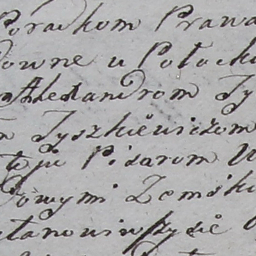 Porackom Prawa
owne u Połock
Alexandrom Ty
Tyszkiewiczom
Pisarom
owymi Zemski
stanowiwszy sie